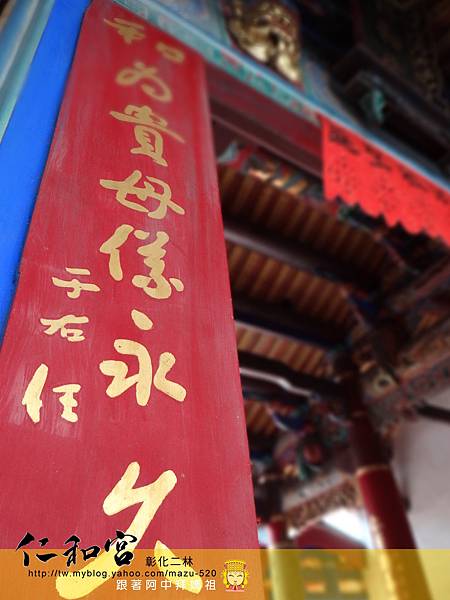 和為貴母儀永久
于右任
仁和宮 彰化二林
http://tw.myblog.yahoo.com/mazu-520
跟著阿中拜媽祖